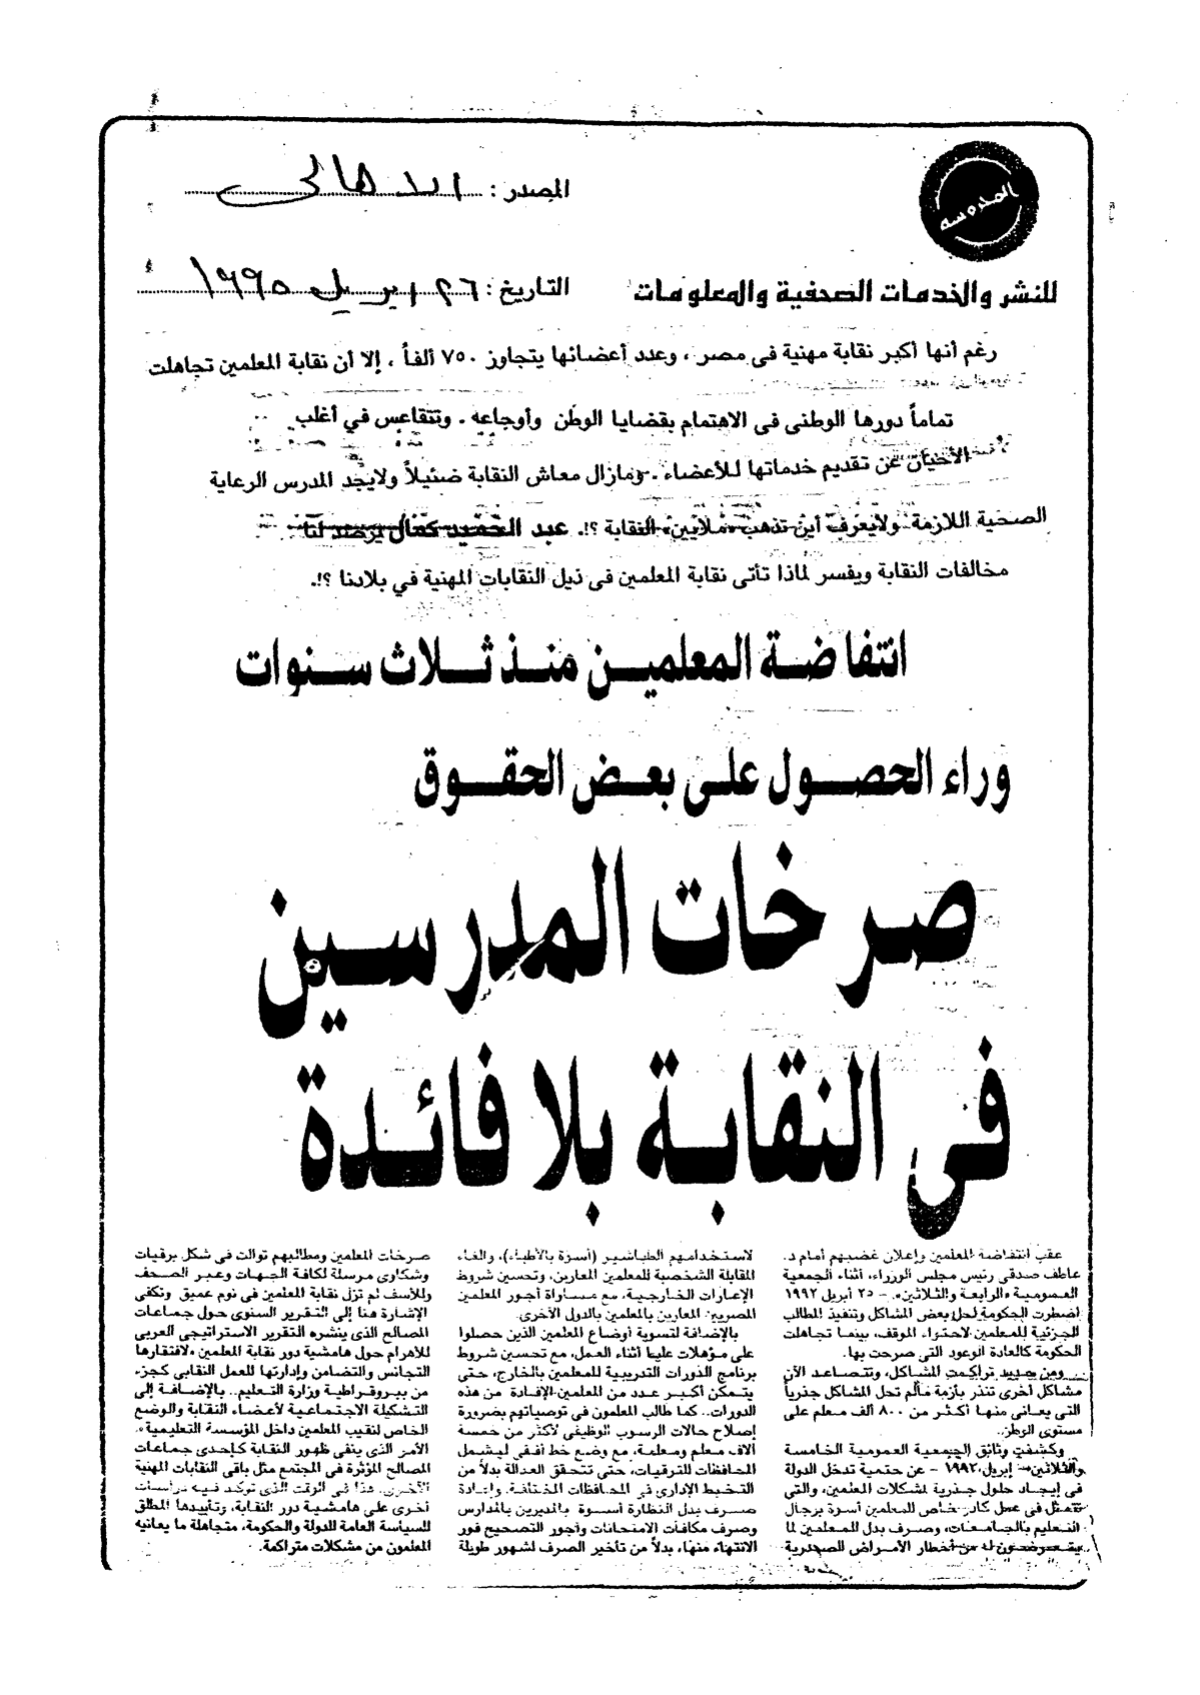 المدروسه
المصدر : الاهالى
للنشر والخدمات الصحفية والمعلومات
التاريخ : ٢٦ ابريل ١٩٩٥
رغم أنها أكبر نقابة مهنية فى مصر ، وعدد أعضائها يتجاوز ٧٥٠ ألفاً ، إلا أن نقابة المعلمين تجاهلت
تماماً دورها الوطنى فى الاهتمام بقضايا الوطن وأوجاعه . وتتقاعس في أغلب
الأحيان عن تقديم خدماتها للأعضاء . ومازال معاش النقابة ضئيلاً ولايجد المدرس الرعاية
الصحية اللازمة ولايعرف أين تذهب «ملايين» النقابة ؟!. عبد الحميد كمال يرصد لنا
مخالفات النقابة ويفسر لماذا تأتى نقابة المعلمين فى ذيل النقابات المهنية في بلادنا ؟!.
انتفاضة المعلمين منذ ثلاث سنوات
وراء الحصول على بعض الحقوق
صرخات المدرسين
فى النقابة بلا فائدة
عقب انتفاضة المعلمين وإعلان غضبهم أمام د.
عاطف صدقى رئيس مجلس الوزراء، أثناء الجمعية
العمومية «الرابعة والثلاثين» - ٢٥ أبريل ١٩٩٢
اضطرت الحكومة لحل بعض المشاكل وتنفيذ المطالب
الجزئية للمعلمين لاحتواء الموقف، بينما تجاهلت
الحكومة كالعادة الوعود التى صرحت بها.
ومن جديد تراكمت المشاكل، وتتصاعد الآن
مشاكل أخرى تنذر بأزمة مالم تحل المشاكل جذرياً
التى يعانى منها أكثر من ٨٠٠ ألف معلم على
مستوى الوطن..
وكشفت وثائق الجمعية العمومية الخامسة
والثلاثين - إبريل - عن حتمية تدخل الدولة
فى إيجاد حلول جذرية لمشكلات المعلمين، والتى
تتمثل فى عمل كادر خاص للمعلمين أسوة برجال
التعليم بالجامعات، وصرف بدل للمعلمين لما
يتعرضون له من أخطار الأمراض الصدرية
لاستخدامهم الطباشير (أسوة بالأطباء)، والغاء
المقابلة الشخصية للمعلمين المعارين، وتحسين شروط
الإعارات الخارجية، مع مساواة أجور المعلمين
المصريين المعارين بالمعلمين بالدول الأخرى.
بالإضافة لتسوية أوضاع المعلمين الذين حصلوا
على مؤهلات عليا أثناء العمل، مع تحسين شروط
برنامج الدورات التدريبية للمعلمين بالخارج، حتى
يتمكن أكبر عدد من المعلمين الإفادة من هذه
الدورات.. كما طالب المعلمون فى توصياتهم بضرورة
إصلاح حالات الرسوب الوظيفى لأكثر من خمسة
آلاف معلم ومعلمة، مع وضع خط أفقى ليشمل
المحافظات للترقيات، حتى تتحقق العدالة بدلاً من
التخبط الإدارى فى المحافظات المختلفة. وإعادة
صرف بدل النظارة أسوة بالمديرين بالمدارس
وصرف مكافآت الامتحانات وأجور التصحيح فور
الانتهاء منها، بدلاً من تأخير الصرف لشهور طويلة
صرخات المعلمين ومطالبهم توالت فى شكل برقيات
وشكاوى مرسلة لكافة الجهات وعبر الصحف
وللأسف لم تزل نقابة المعلمين فى نوم عميق وتكفى
الإشارة هنا إلى التقرير السنوى حول جماعات
المصالح الذى ينشره التقرير الاستراتيجى العربى
للأهرام حول هامشية دور نقابة المعلمين «لافتقارها
التجانس والتضامن وإدارتها للعمل النقابى كجزء
من بيروقراطية وزارة التعليم.. بالإضافة إلى
التشكيلة الاجتماعية لأعضاء النقابة والوضع
الخاص لنقيب المعلمين داخل المؤسسة التعليمية».
الأمر الذى ينفى ظهور النقابة كإحدى جماعات
المصالح المؤثرة فى المجتمع مثل باقى النقابات المهنية
الأخرى. هذا فى الوقت الذى تؤكد فيه دراسات
أخرى على هامشية دور النقابة، وتأييدها المطلق
للسياسة العامة للدولة والحكومة، متجاهلة ما يعانيه
المعلمون من مشكلات متراكمة.